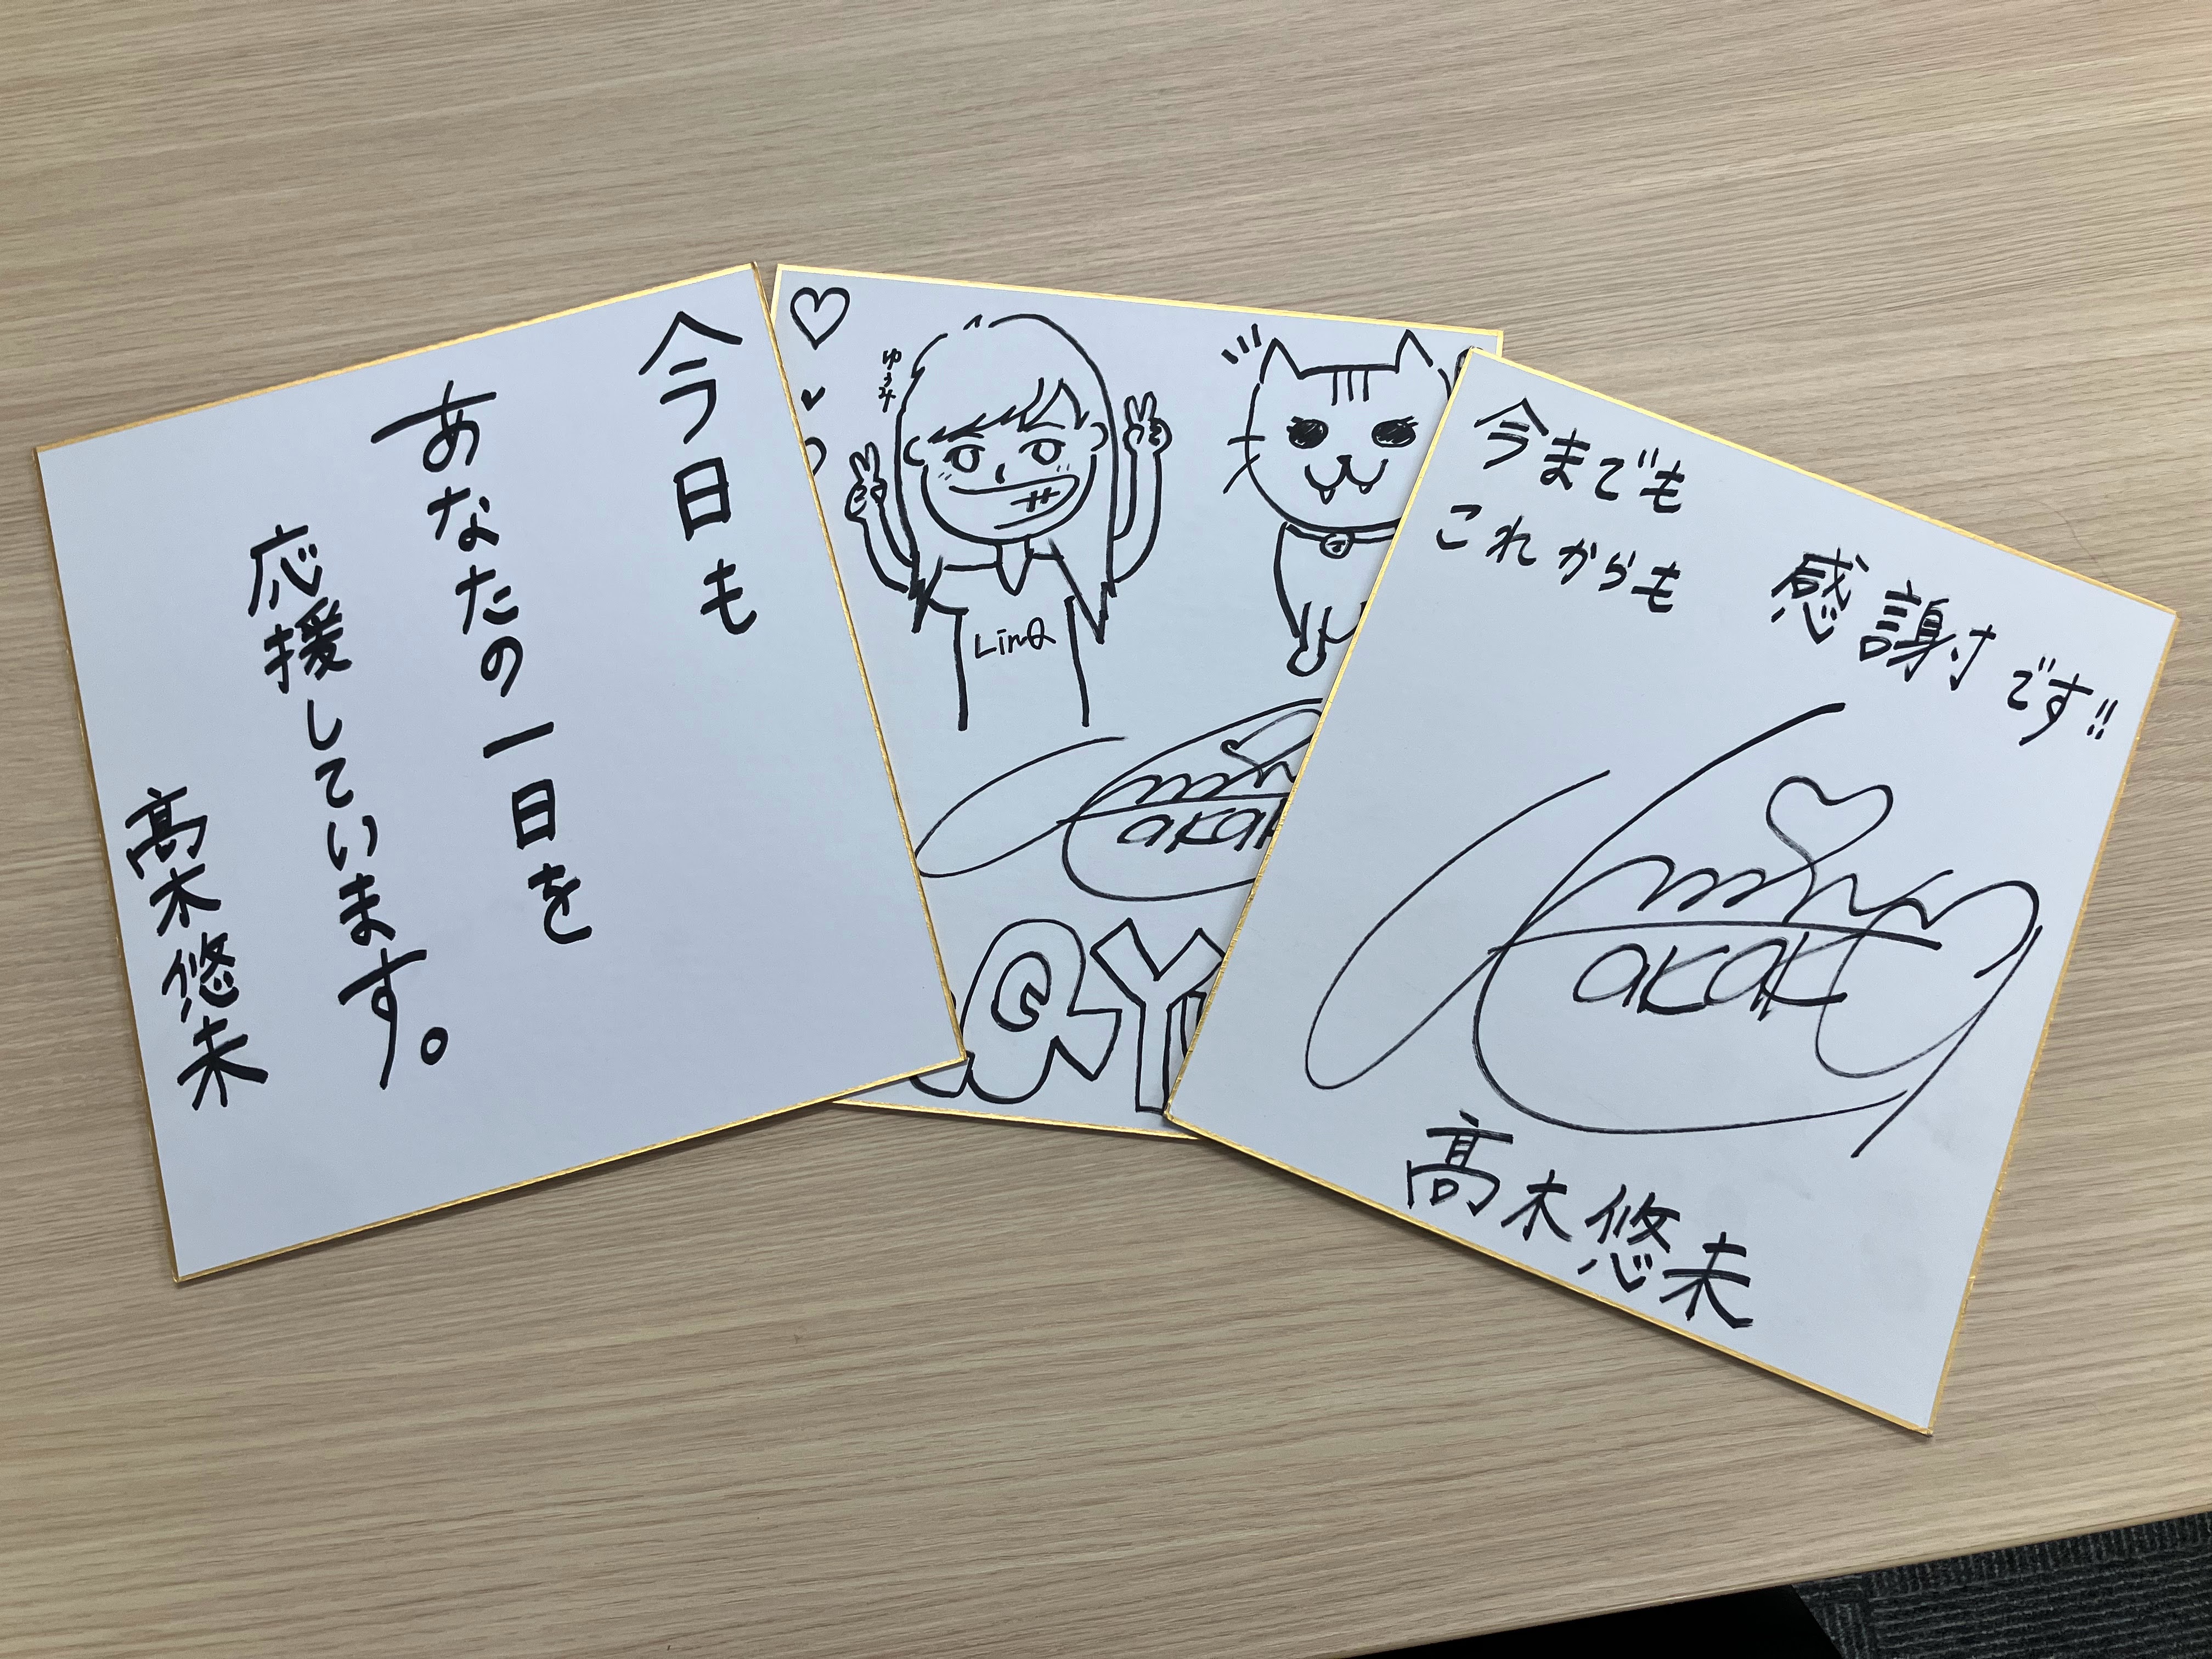 今日も
あなたの一日を
応援しています。
髙木悠未
ゆうみ
LinQ
akak
今までも
これからも
感謝です!!
akaki
髙木悠未